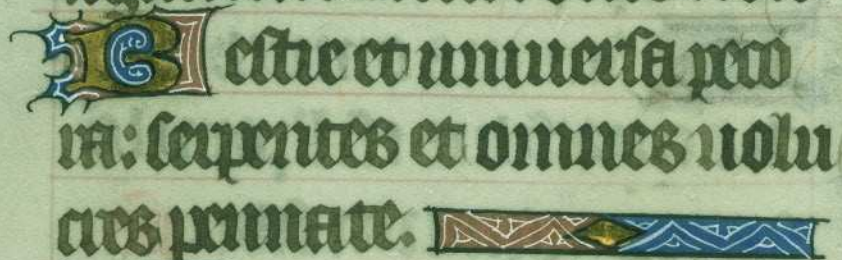 Bestie et universa peco
ra: serpentes et omnes uolu
cres pennate.